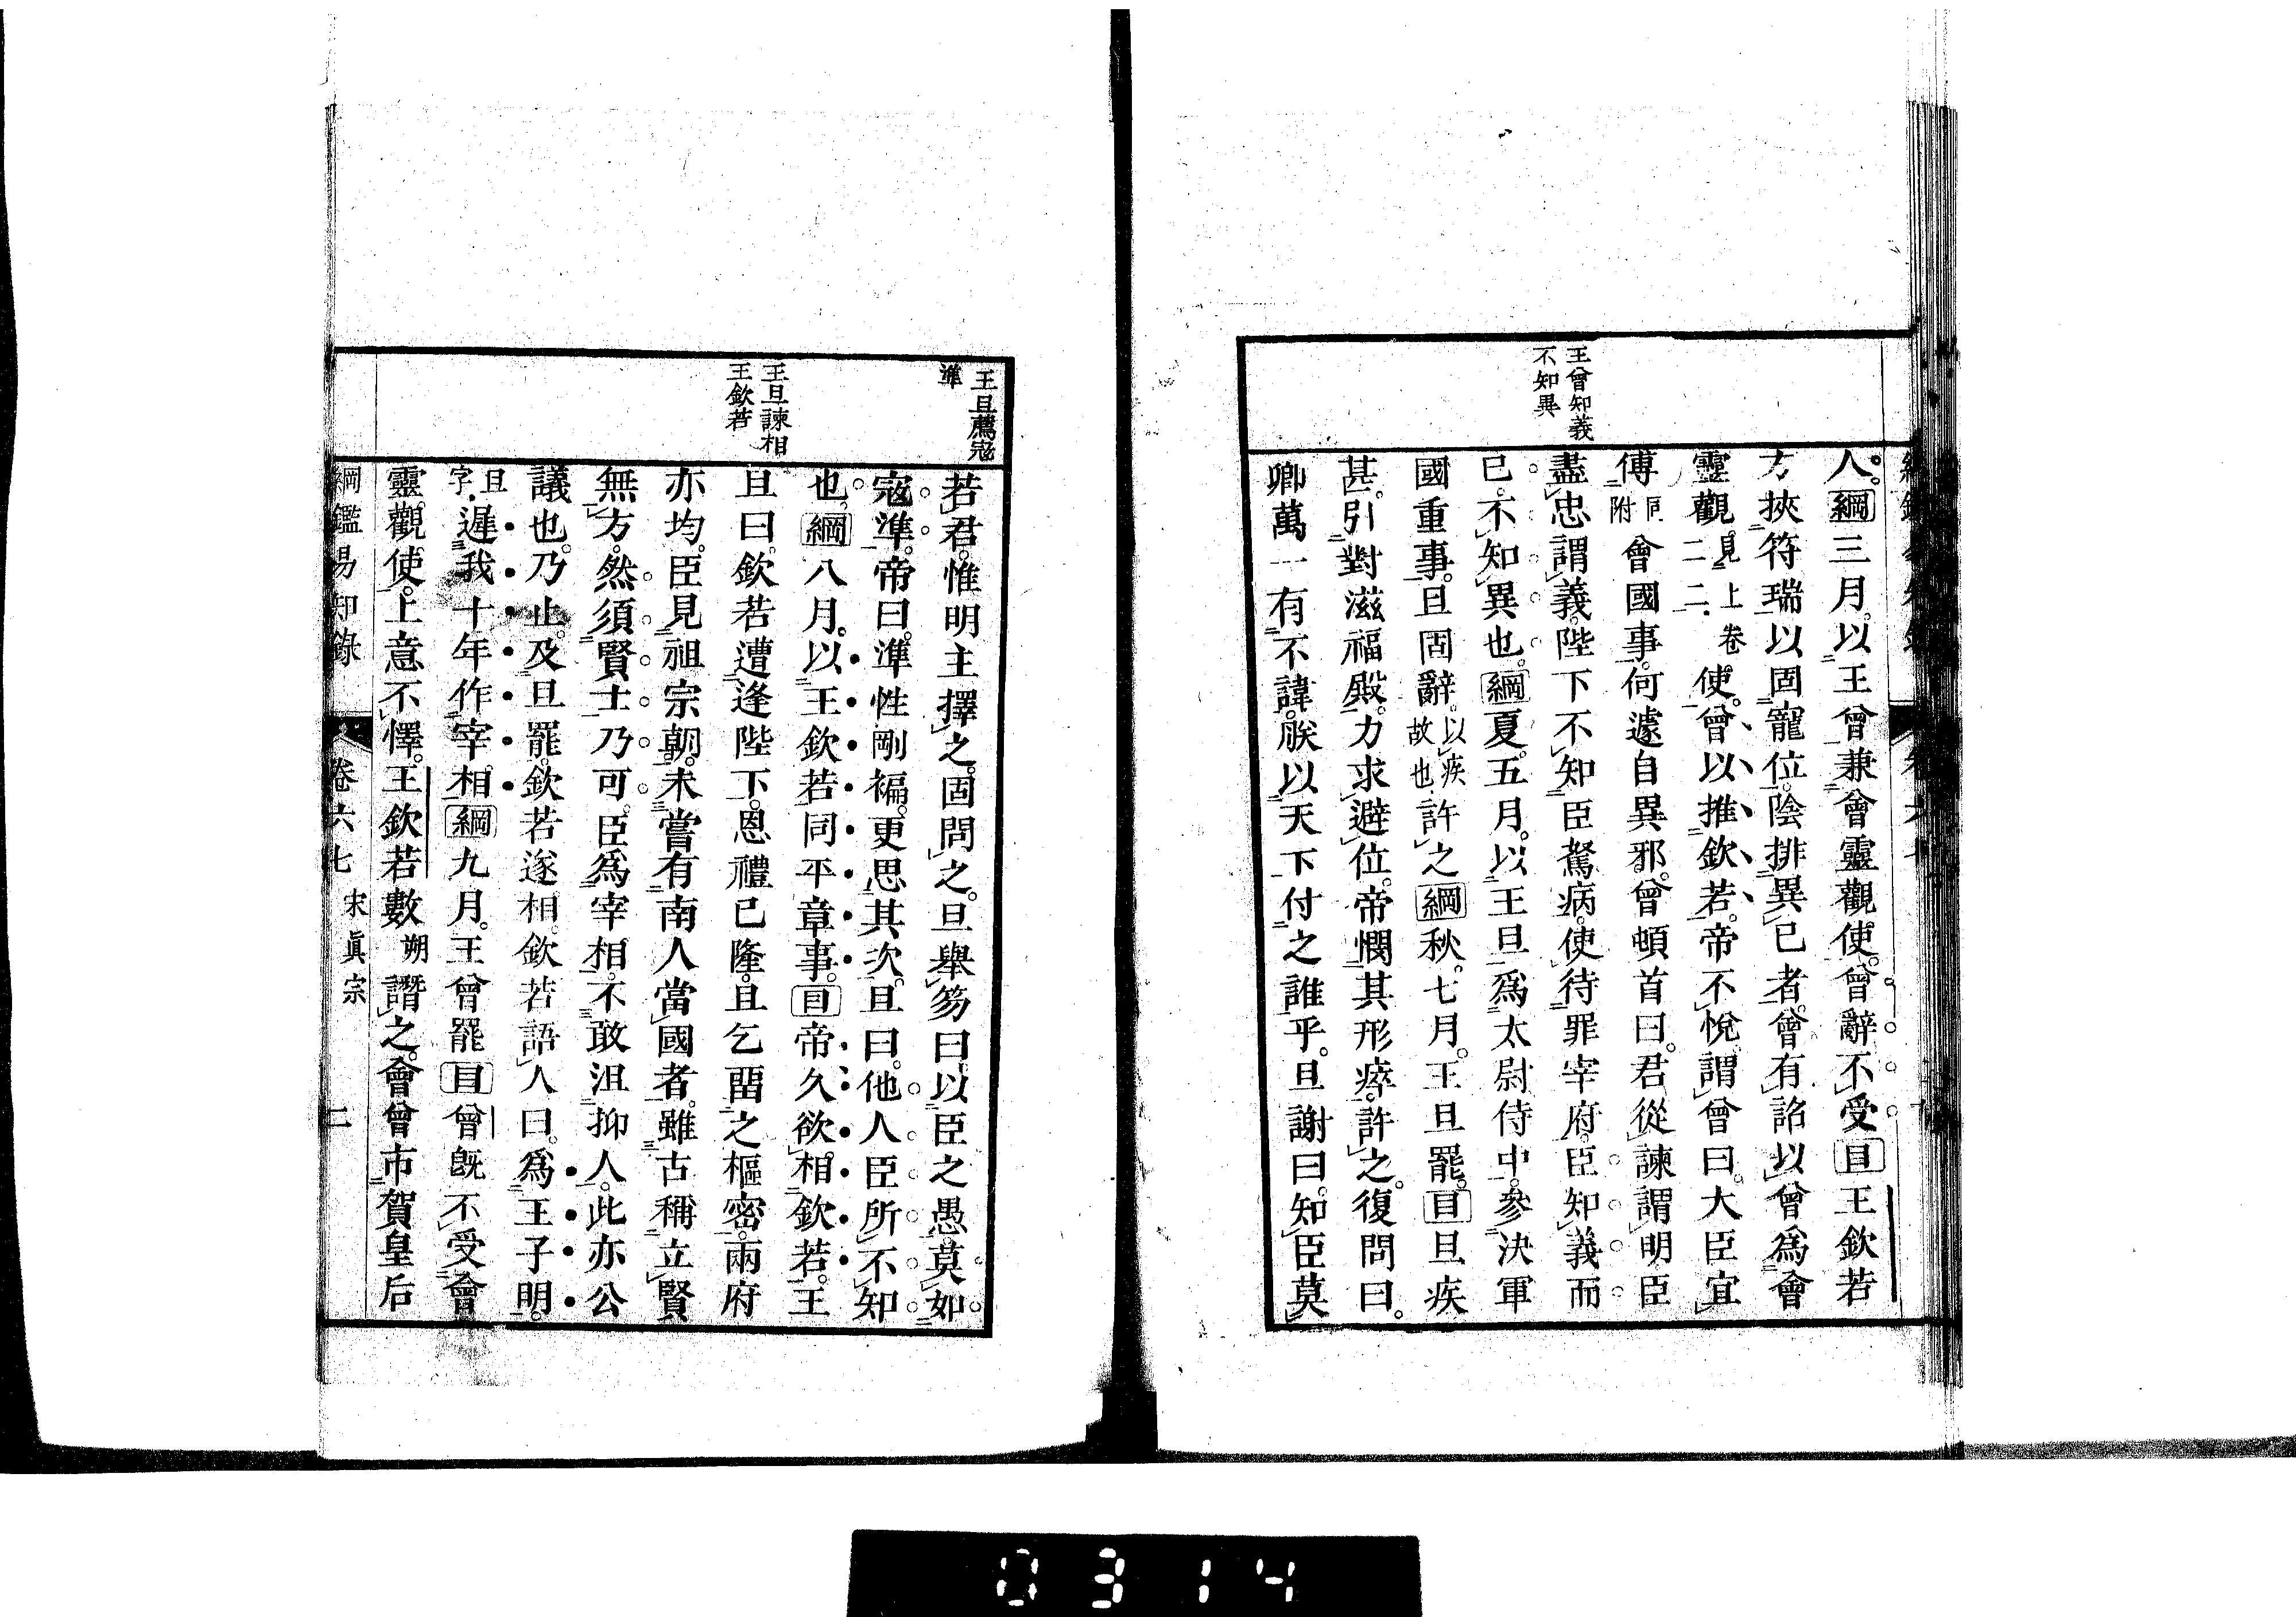 王曾知義
不知異
人。綱三月。以王曾兼會靈觀使。曾辭不受目王欽若
方挾符瑞以固寵位。陰排異已者。曾有詔以曾爲會
靈觀。見上卷二二使。曾以推欽若。帝不悅。謂曾曰。大臣宜
傅同附會國事。何遽自異邪。曾頓首曰。君從諫謂明。臣
盡忠謂義。陛下不知臣駑病。使待罪宰府。臣知義而
已。不知異也。綱夏。五月。以王旦爲太尉侍中。參決軍
國重事。旦固辭。以疾故也許之綱秋。七月。王旦罷。目旦疾
甚。引對滋福殿。力求避位。帝憫其形瘁。許之。復問曰。
卿萬一有不諱。朕以天下付之誰乎。旦謝曰。知臣莫
王旦薦寇
準
王旦諫相
王欽若
若君。惟明主擇之。固問之。旦舉笏曰。以臣之愚。莫如
寇準。帝曰。準性剛褊。更思其次。旦曰。他人臣所不知
也。綱八月。以王欽若同平章事。目帝久欲相欽若。王
旦曰。欽若遭逢陛下。恩禮已隆。且乞畱之樞密。兩府
亦均。臣見祖宗朝。未嘗有南人當國者。雖古稱立賢
無方。然須賢士乃可。臣爲宰相。不敢沮抑人。此亦公
議也。乃止。及旦罷。欽若遂相。欽若語人曰。爲王子明。
旦字遲我十年作宰相。綱九月。王曾罷目曾旣不受會
靈觀使。上意不懌。王欽若數朔譖之。會曾市賀皇后
綱鑑易知錄 卷六七 宋眞宗 二